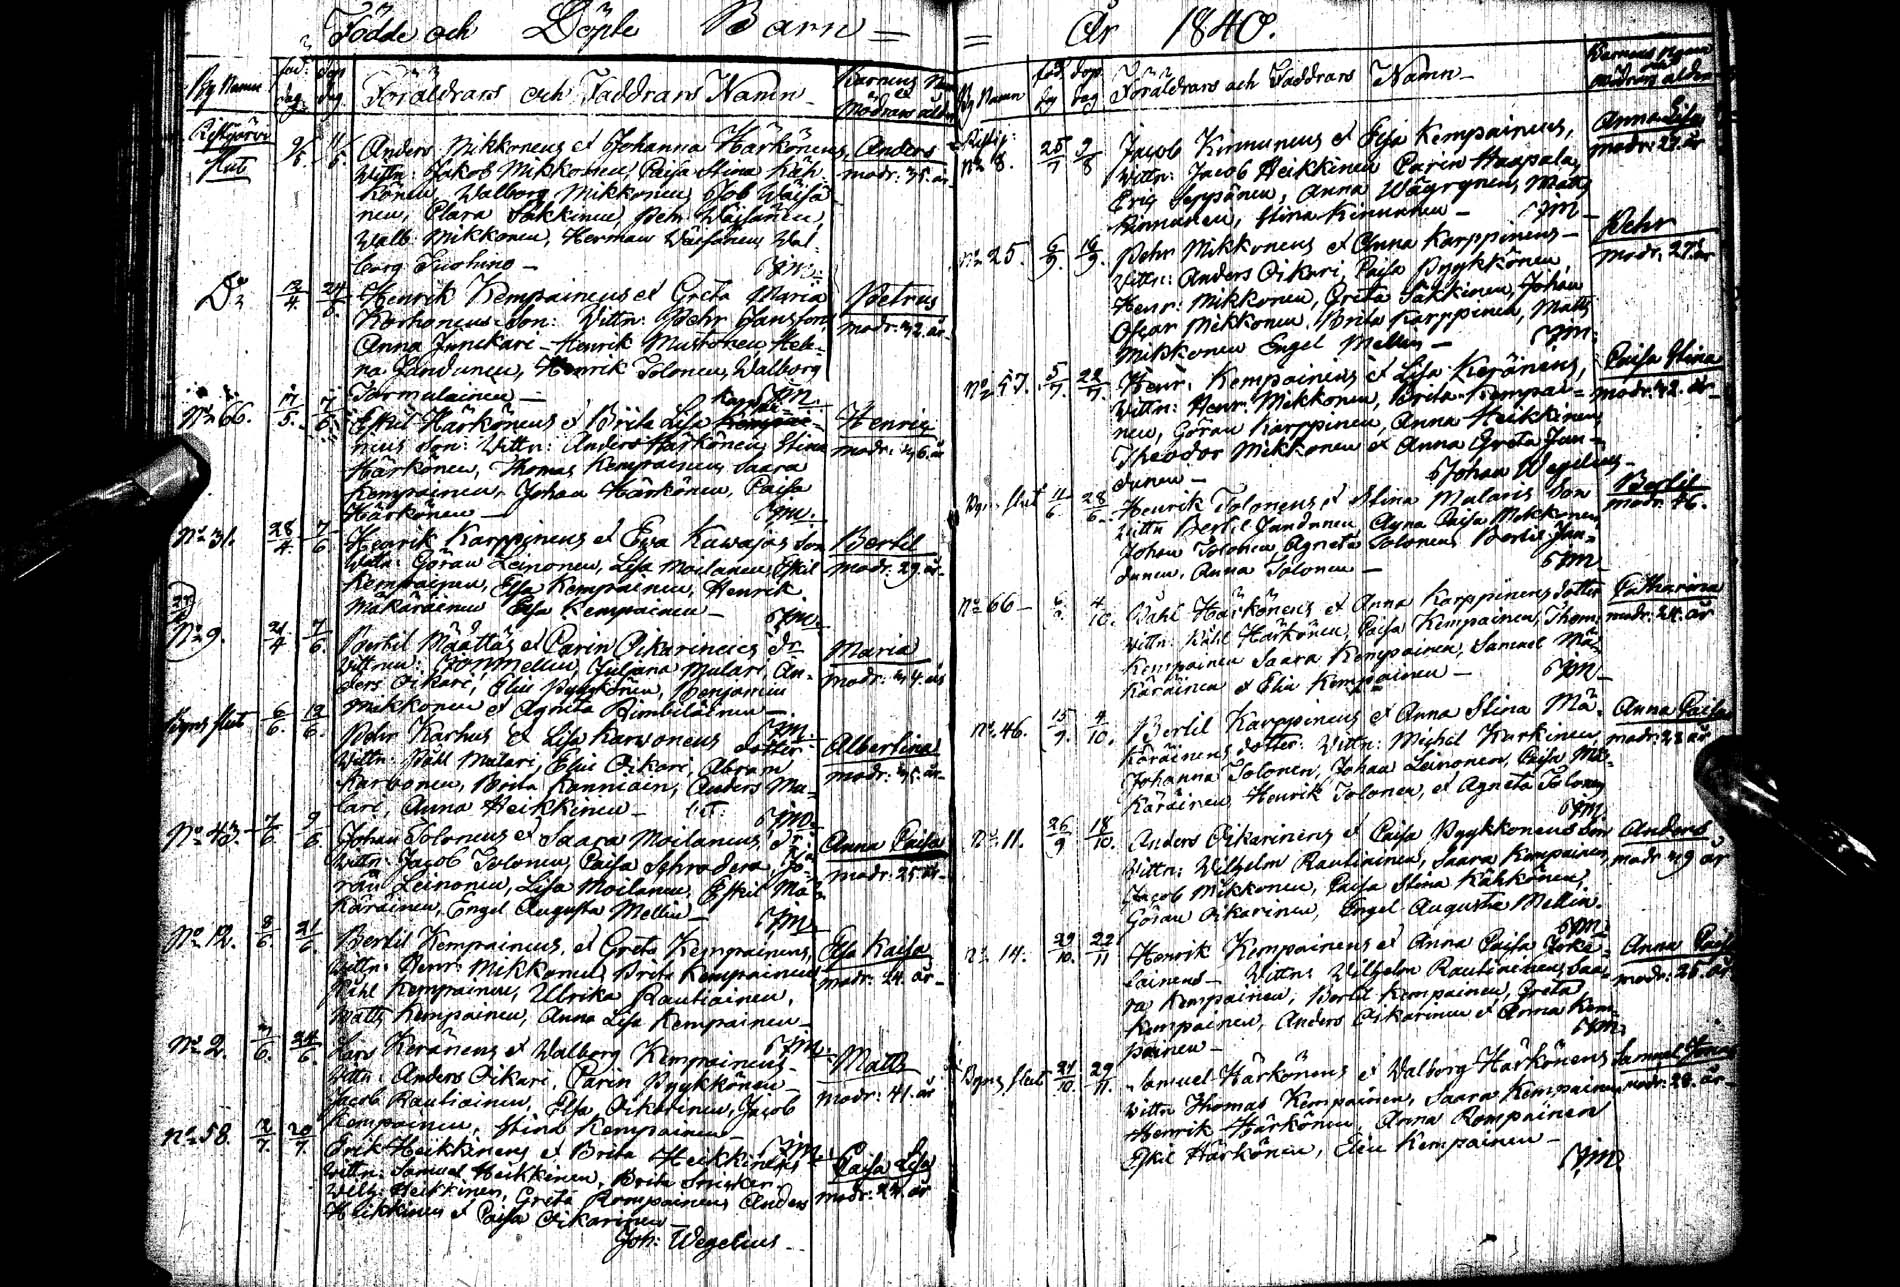 Födde och Döpte Barn = = År 1840.
By Namn
föd: dag
döp dag
Föräldrars och Faddrars Namn
Barnens Namn et Modrens ålder
Ristijärvi
Slut
9/5 11/5
Anders Mikkonens et Johanna Härkönens
Wittn: Jakob Mikkonen, Caisa Stina Käh-
könen, Walborg Mikkonen, Job Wäisä
nen, Clara Säkkinen, Pehr Wäisänen,
Walb: Mikkonen, Herman Wäisänen, Wal-
borg
Anders
modr: 35. år
Do
13/4 24/5
Henrik Kempainens et Greta Maria
Korhonens Son: Wittn: Pehr Jansson
Anna Junikari - Henrik Mustonen, Hele-
na Jundunen, Henrik Tolonen, Walborg
Tarmulainen -
Petrus
modr: 32. år
No 66.
17/5 7/6
Eskil Härkönens et Brita Lisa
nens Son: Wittn: Anders Härkönen, Stina
Härkönen, Thomas Kempainen, Saara
Kempainen, Johan Härkönen, Caisa
Härkönen -
Henric
modr: 36. år
No 31.
28/4 7/6
Henrik Karppinens et Ewa Kawajas Son
Wittn: Göran Leinonen, Lisa Moilanen, Eskil
Kempainen, Elsa Kempainen, Henrik
Mäkäräinen Elsa Kempainen -
Bertil
modr: 29. år
No 9.
21/4 7/6
Bertil Määttäs et Carin Oikarinens dr
Wittnen: Mellin, Juliana Mulari, An-
ders Oikari, Elin Pyykkönen, Benjamin
Mikkonen et Agneta Rimbiläinen -
Maria
modr: 34. år
Byns slut
6/6. 12/6.
Pehr Karhus et Lisa Karwonens dotter
Wittn: Påhl Mulari, Elin Oikari, Abram
Karwonen, Brita Kanniain, Anders Mu-
lari, Anna Heikkinen -
Albertina
modr: 35. år
No 43.
7/6 9/6
Johan Tolonens et Saara Moilanens Dr
Wittn: Jacob Tolonen, Caisa Schrodera, Gö-
ran Leinonen, Lisa Moilanen, Eskil Mä-
käräinen, Engel Augusta Mellin -
Anna Caisa
modr: 25. år
No 12.
8/6. 21/6
Bertil Kempainens, et Greta Kempainens,
Wittn: Henr: Mikkonen, Brita Kempainen
Påhl Kempainen, Ulrika Rautiainen,
Matts Kempainen, Anna Lisa Kempainen -
Elsa Kaisa
modr: 24. år
No 2.
24/6.
Lars Keränens et Walborg Kempainens -
Wittn: Anders Oikari, Carin Pyykkönen -
Jacob Rautiainen, Elsa Oikarinen, Jacob
Kempainen, Stina Kempainen -
Matts
modr: 41. år
No 58.
12/7. 20/7.
Erik Heikkinens et Brita Heikkinens
Wittn: Samuel Heikkinen, Brita
Wilh: Heikkinen, Greta Kempainens Anders
Heikkinen et Caisa Oikarinen -
Caisa Lisa
modr: 24. år
Joh: Wegelius
By Namn
föd dag
döp. dag
Föräldrars och Faddrars Namn -
Barnens Namn och Modrens ålder
No 8.
25/7 9/8
Jacob Kinnunens et Elsa Kempainens,
Wittn: Jacob Heikkinen Carin Haapala,
Eric Seppänen, Anna Wäyrynen, Matts
Kinnunen, Stina Kinnunen -
Anna Lisa
modr: 27. år
No 25.
6/9. 16/9.
Pehr Mikkonens et Anna Karppinens -
Wittn: Anders Oikari, Caisa Pyykkönen
Henr: Mikkonen, Greta Säkkinen, Johan
Oscar Mikkonen, Brita Karppinen, Matts
Mikkonen Engel Mellin -
Pehr
modr: 27. år
No 57.
5/7. 22/7.
Henr: Kempainens et Lisa Keränens,
Wittn: Henr: Mikkonen, Brita Kempai-
nen, Göran Karppinen, Anna Heikkinen,
Theodor Mikkonen et Anna Greta Jun-
dunen -
Johan Wegelius -
Caisa Stina
modr: 42. år
Byns slut
4/6 28/6.
Henrik Tolonens et Stina Mularis Son
Wittn Bertil Jundunen, Anna Caisa Mikkonen,
Johan Tolonen, Agneta Tolonen, Bertil Jun-
dunen, Anna Tolonen -
Bertil
modr: 46.
No 66 -
4/10.
Påhl Härkönens et Anna Karppinens dotter
Wittn: Påhl Härkönen, Caisa Kempainen, Thom:
Kempainen Saara Kempainen, Samuel Mä-
käräinen et Elin Kempainen -
Catharina
modr: 24. år
No. 46.
15/9. 4/10.
Bertil Karppinens et Anna Stina Mä-
käräinens, dotter: Wittn: Michel Kurkinen,
Johanna Tolonen, Johan Leinonen, Caisa Mä-
käräinen, Henrik Tolonen, et Agneta Tolonen
Anna Caisa
modr: 28 år
No. 11.
26/9 18/10.
Anders Oikarinens et Caisa Pyykkönens Son
Wittn: Wilhelm Rautiainen, Saara Kempainen,
Jacob Mikkonen, Caisa Stina Kähkönen,
Göran Oikarinen, Engel Augusta Mellin.
Anders
modr 39 år
No. 14.
29/10. 22/11
Henrik Kempainens et Anna Caisa Joke-
lainens - Wittn: Wilhelm Rautiainen, Saa-
ra Kempainen, Bertil Kempainen, Greta
Kempainen, Anders Oikarinen et Anna Kem-
painen -
Anna Caisa
modr: 25. år
Byns slut
21/10. 29/11.
Samuel Härkönens et Walborg Härkönens
Wittn Thomas Kempainen, Saara Kempainen
Henrik Härkönen, Anna Kempainen
Eskil Härkönen, Elin Kempainen -
Samuel
modr: 28. år